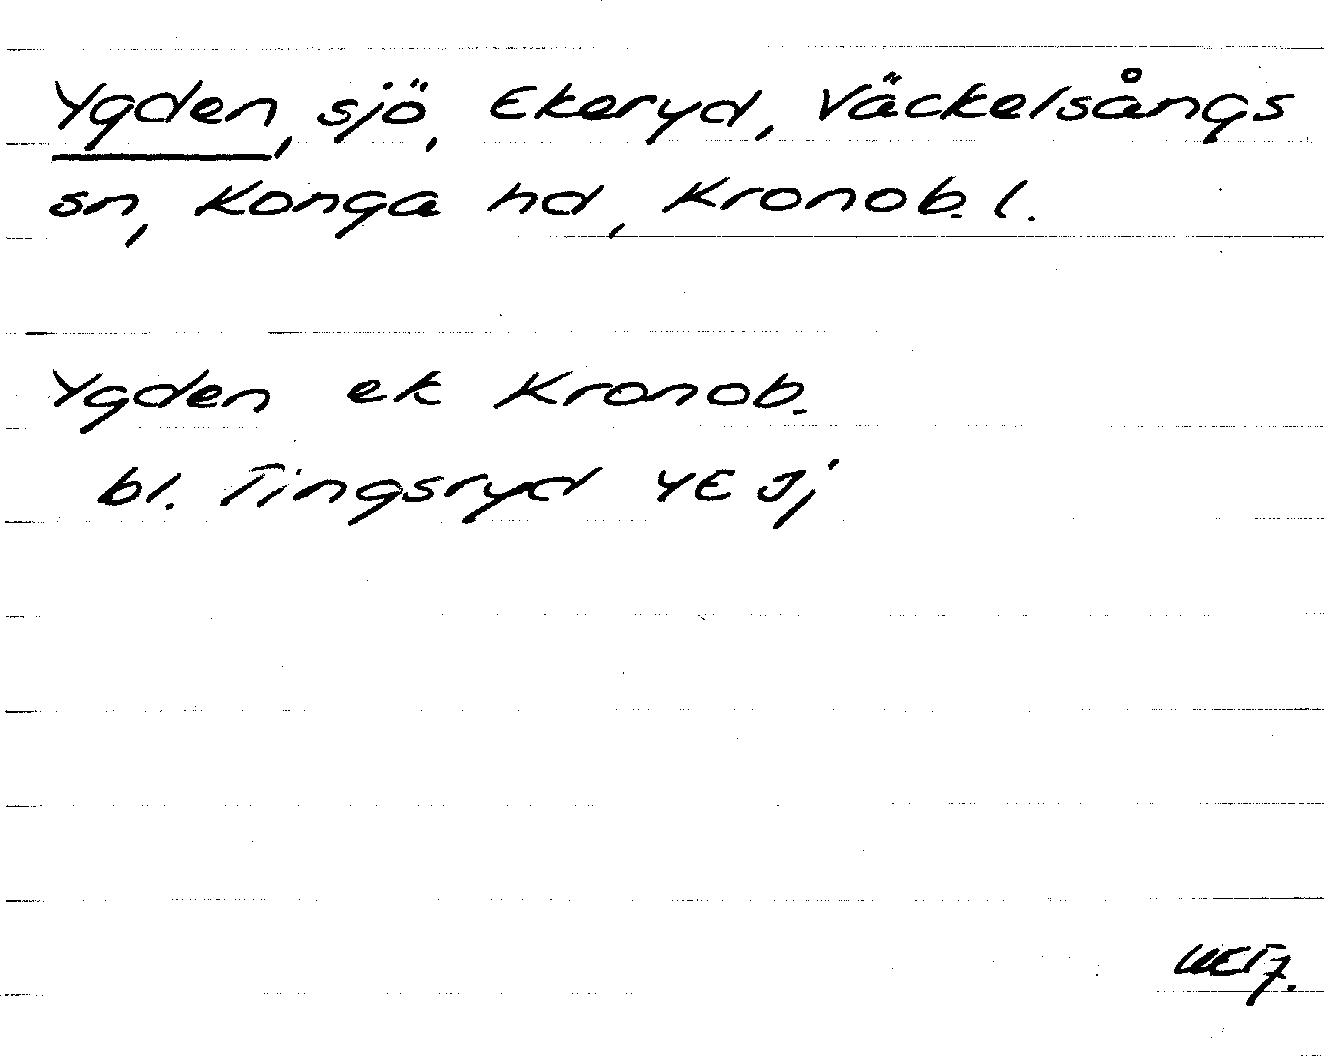 Ygden, sjö, Ekeryd, Väckelsångs
sn, Konga hd, Kronob. l.
Ygden ek Kronob.
bl. Tingsryd 4E Jj